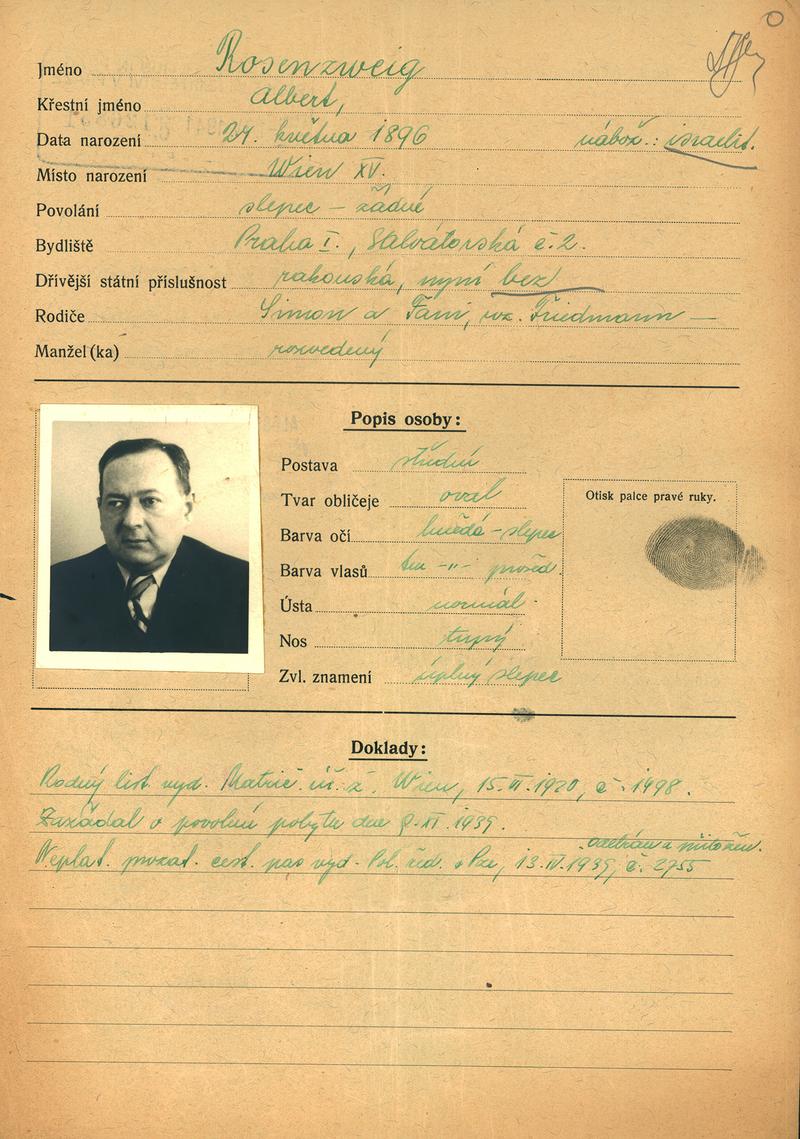 Jméno Rosenzweig
Křestní jméno Albert,
Data narození 24. května 1896 nábož.: israelit.
Místo narození Wien XV.
Povolání slepec – žádné
Bydliště Praha I., Salvátorská č. 2.
Dřívější státní příslušnost rakouská, nyní bez
Rodiče Simon a Fani, roz. Friedmann —
Manžel (ka) rozvedený
Popis osoby:
Postava střední
Tvar obličeje ovál
Otisk palce pravé ruky.
Barva očí hnědá – slepec
Barva vlasů tm -"- prošed.
Ústa normál.
Nos tupý
Zvl. znamení úplný slepec
Doklady:
Rodný list vyd. Matrič. úř. ž. Wien, 15. VI. 1920, č. 1498.
Zažádal o povolení pobytu dne 9. XI. 1939.
odebrán a přiložen.
Neplat. prozat. cest. pas vyd. Pol. řed. v Pze, 13. IV. 1939, č. 2755